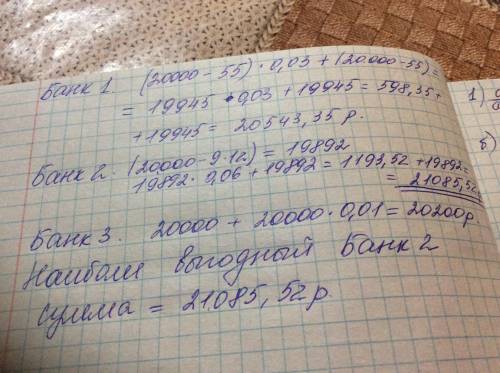 Банк 1. (20000 - 55) · 0,03 + (20000 - 55) =
= 19945 · 0,03 + 19945 = 598,35 +
+ 19945 = 20543,35 р.
Банк 2. (20000 - 9·12) = 19892
19892 · 0,06 + 19892 = 1193,52 + 19892 =
= 21085,52
Банк 3. 20000 + 20000 · 0,01 = 20200р
Наиболе выгодный Банк 2
сумма = 21085,52 р
1)
б)